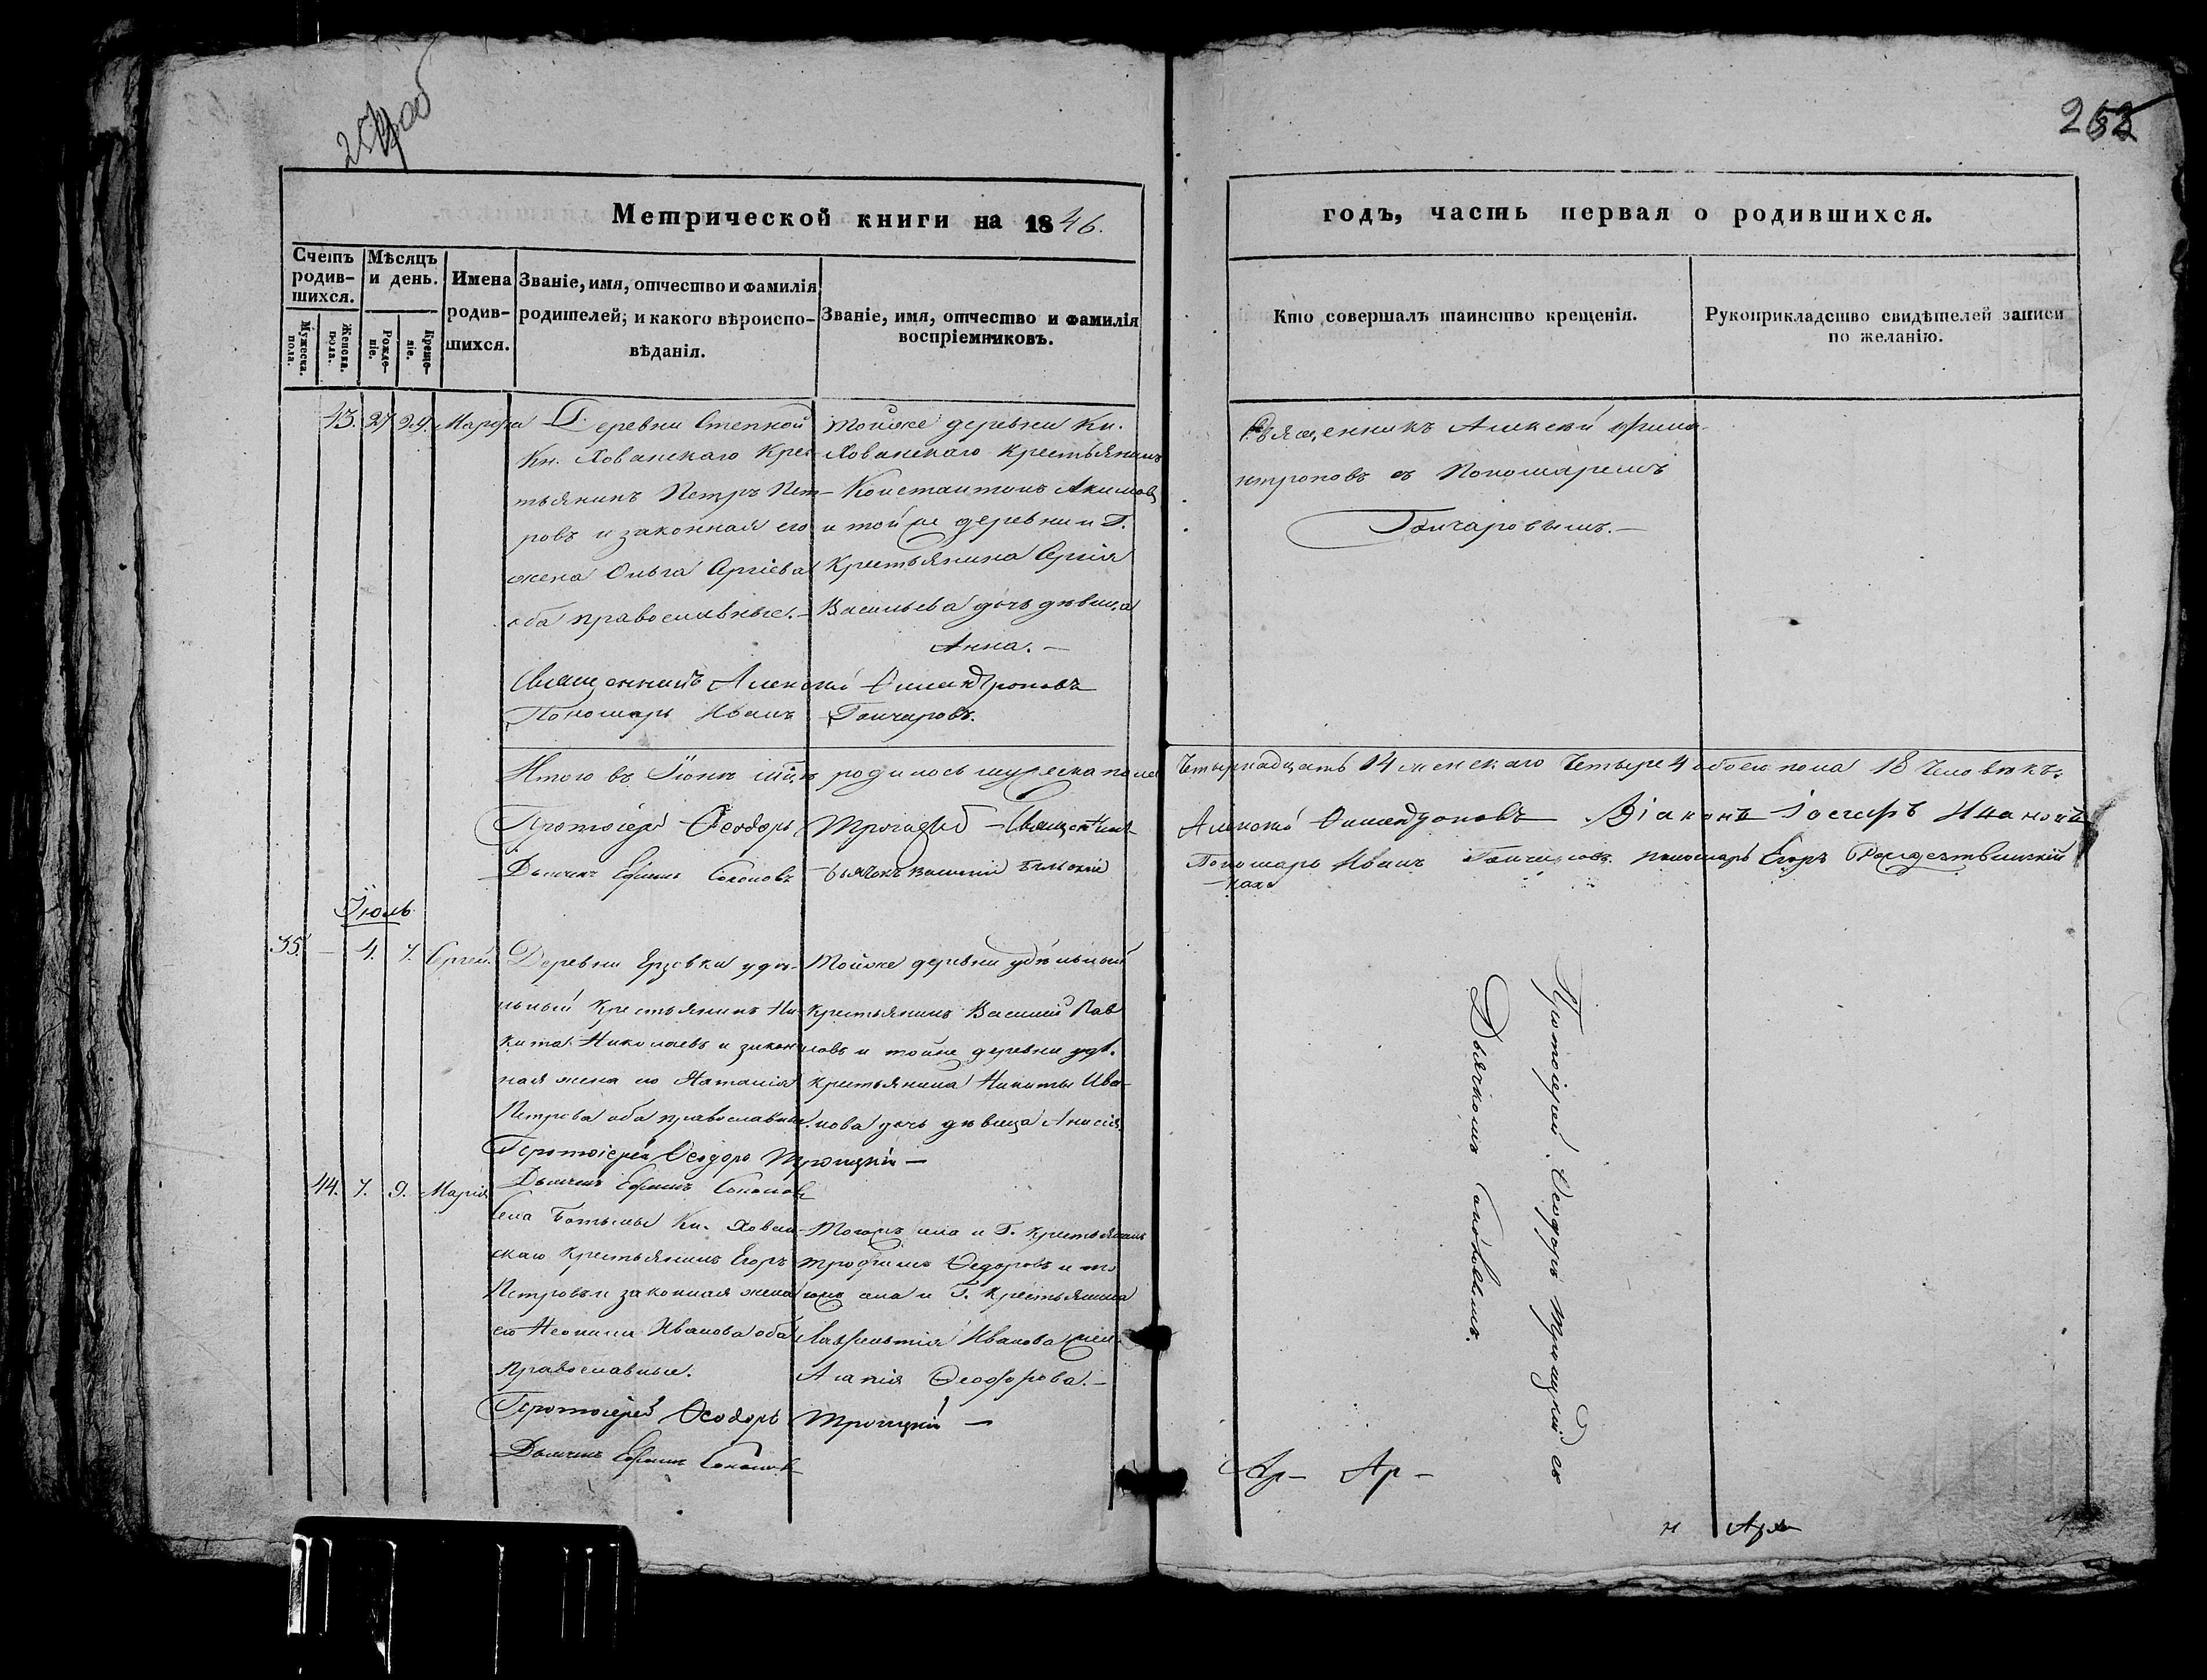 253
Метрической книги на 1846.
годъ, часть первая о родившихся.
Счетъ родив-шихся.
Мужеска. пола.
Женска. пола.
Мѣсяцъ и день.
Рожде-ніе.
Креще-ніе.
Имена родив-шихся.
Званіе, имя, отчество и фамилія родителей; и какого вѣроиспо-вѣданія.
Званіе, имя, отчество и фамилія воспріемниковъ.
Кто совершалъ таинство крещенія.
Рукоприкладство свидѣтелей записи по желанію.
43. 27 29. Марфа
Деревни Степной
Кн. Хованскаго Крес-
тьянинъ Петръ Пет-
ровъ и законная его
жена Ольга Сергіева
оба православные.-
Тойже деревни Кн.
Хованскаго Крестьянинъ
Константинъ Акимовъ
и той же деревни и Г.
Крестьянина Сергія
Васильева дочь дѣвица
Анна.-
Священникъ Алексѣй
съ Пономаремъ
Гончаровымъ.-
Священникъ Алексѣй
Пономарь Иванъ Гончаровъ.
Итого въ Іюнѣ м-цѣ родилось мужеска пола Четырнадцать 14 женскаго Четыре 4 обоего пола 18 Человѣкъ.
Протоіерей Ѳеодоръ Троицкій Священникъ Алексѣй Діаконъ
Дьячекъ Ефимъ Соколовъ Дьячекъ Василий Бѣльскій Пономарь Иванъ Гончаровъ. Пономарь Егоръ Рождественскій
Іюль
35. - 4. 7. Сергей.
Деревни Ерзовки удѣ-
льный Крестьянинъ Ни-
кита Николаевъ и закон-
ная жена его Наталія
Петрова оба православные.
Тойже деревни удѣльный
Крестьянинъ Василий Пав
ловъ и тойже деревни удѣ.
крестьянина Никиты Ива-
нова дочь дѣвица Анисія
Протоіерей Ѳеодоръ Троицкій-
Дьячекъ Ефимъ Соколовъ
44. 7. 9. Марія
Села Ботьмы Кн. Хован-
скаго Крестьянинъ Егоръ
Петровъ и законная жена
его Неонила Иванова оба
православные.
Тогожъ села и Г. Крестьянинъ
Трофимъ Ѳедоровъ и то
гожъ села и Г. Крестьянина
Лаврентія Иванова жена
Агапія Ѳеодорова.-
Протоіерей Ѳеодоръ Троицкій-
Дьячекъ Ефимъ Соколовъ
Протоіерей Ѳеодоръ Троицкій съ
Дьячкомъ Соколовымъ.